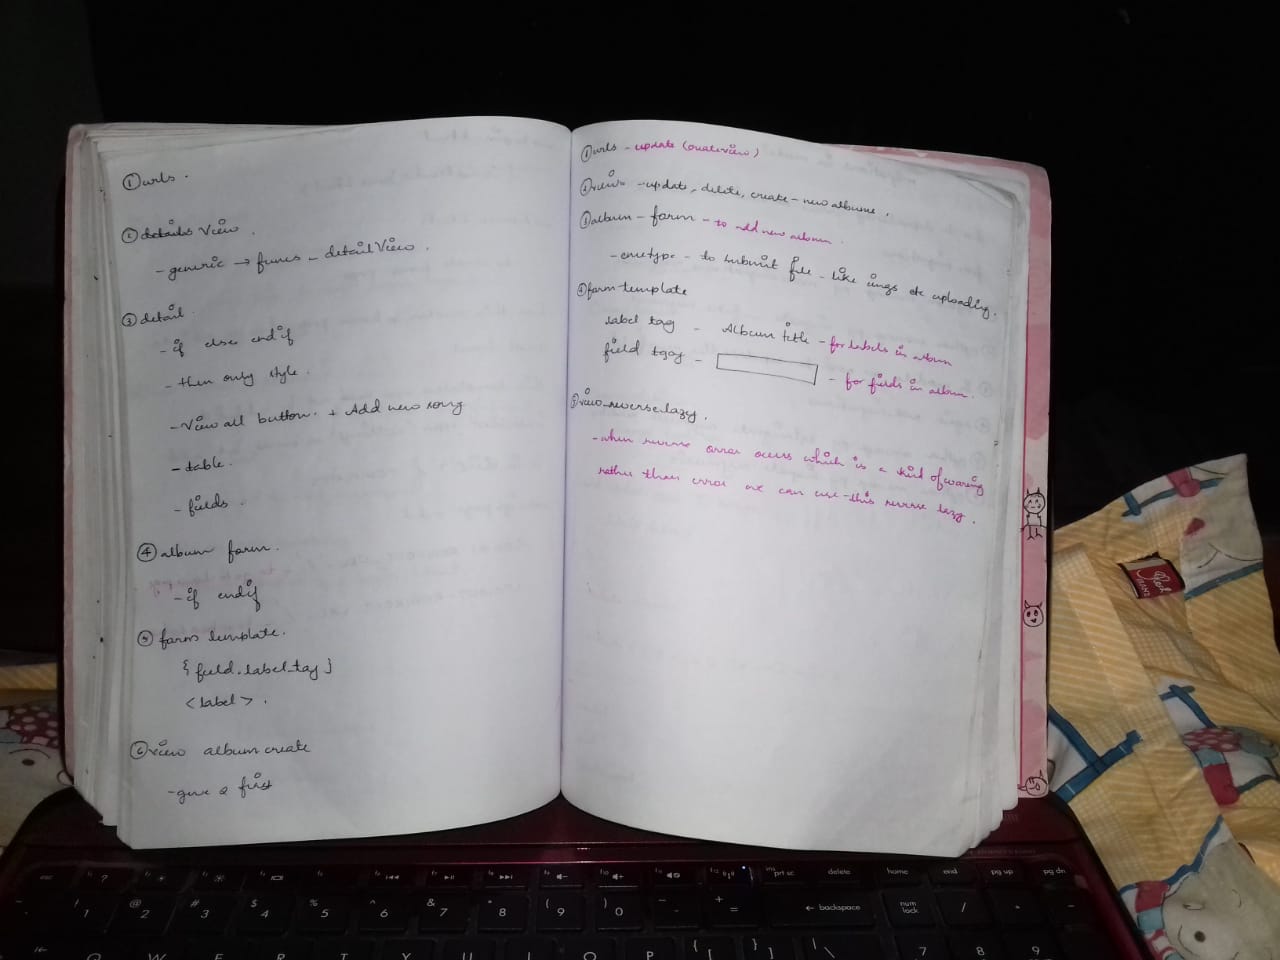 ① urls.
② details View.
- generic → funcs - detailView.
③ detail
- if else endif
- then only style.
- View all button. + Add new song
- table.
- fields.
④ album form.
- if endif
⑤ form template.
{field.label_tag}
<label>.
⑥ view album create
- give a first
① urls - update (
② views - update, delete, create - new albums.
③ album - form - to add new album.
- enctype - to submit file - like imgs etc uploading.
④ form-template
label tag - Album title - for labels in album
field tgay - - for fields in album.
⑤ view_reverse.lazy.
- when reverse error occurs which is a kind of waring
rather than error we can use this reverse lazy.
esc ? prt sc delete home end pg up pg dn
! 1 @ 2 # 3 $ 4 % 5 ^ 6 & 7 * 8 ( 9 ) 0 - + = ← backspace num lock / * -
Q W E R T Y U I O P { [ } ] | \ 7 8 9